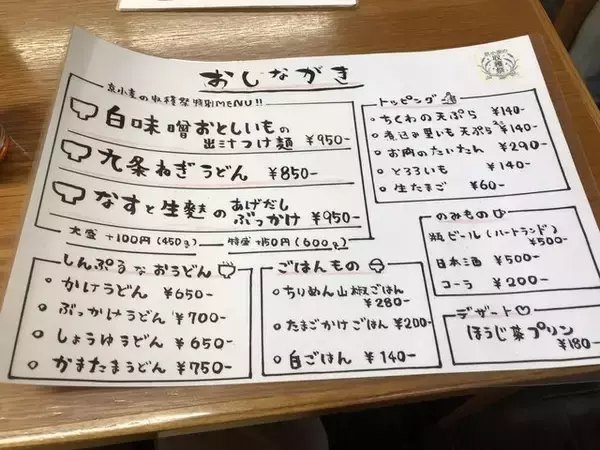 おしながき
京小麦の
収穫祭
京小麦の収穫祭特別MENU!!
白味噌おとしいもの
出汁つけ麺 ¥950-
九条ねぎうどん ¥850-
なすと生麩のあげだし
ぶっかけ ¥950-
大盛 +100円(450g) 特盛 +150円(600g)
しんぷるなおうどん
かけうどん ¥650-
ぶっかけうどん ¥700-
しょうゆうどん ¥650-
かまたまうどん ¥750-
ごはんもの
ちりめん山椒ごはん
¥280-
たまごかけごはん ¥200-
白ごはん ¥140-
トッピング
ちくわの天ぷら ¥140-
煮込み里いも天ぷら ¥140-
お肉のたいたん ¥290-
とろろいも ¥140-
生たまご ¥60-
のみもの
瓶ビール(ハートランド)
¥500-
日本酒 ¥500-
コーラ ¥200-
デザート
ほうじ茶プリン
¥180-